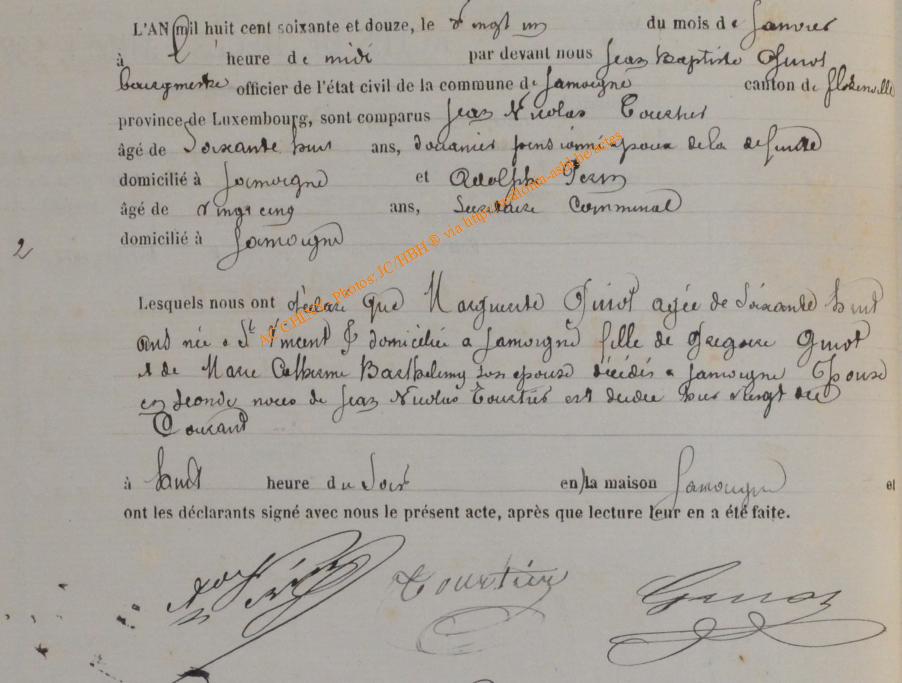 L'AN mil huit cent soixante et douze, le vingt un du mois de Janvier
à l' heure de midi par devant nous Jean Baptiste Guiot
bourgmestre officier de l'état civil de la commune de Jamoigne canton de florenville
province de Luxembourg, sont comparus Jean Nicolas Tourtier
âgé de Soixante huit ans, douanier pensionné époux de la defunte
domicilié à Jamoigne et Adolph
âgé de vingt cinq ans, Secrétaire Communal
domicilié à Jamoigne
2
Lesquels nous ont déclaré que Marguerite Guiot agée de Soixante huit
ans née a St Vincent & domiciliée a Jamoigne fille de Gregoire Guiot
& de Marie Catherine Barthelemy son epouse décédés a Jamoigne Epouse
en seconde noces de Jean Nicolas Tourtier est decedee hier vingt du
Courant
à huit heure du Soir en la maison Jamoigne et
ont les déclarants signé avec nous le présent acte, après que lecture leur en a été faite.
Tourtier
ARCHIVES Photos: JC/HBH © via